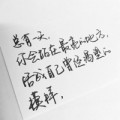 总有一天，
你会站在最亮的地方，
活成自己曾经渴望的
模样，